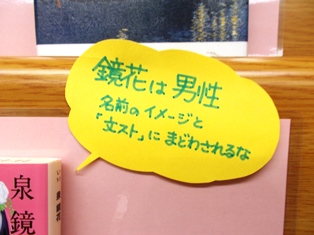 鏡花は男性
名前のイメージと
「文スト」にまどわされるな
泉鏡